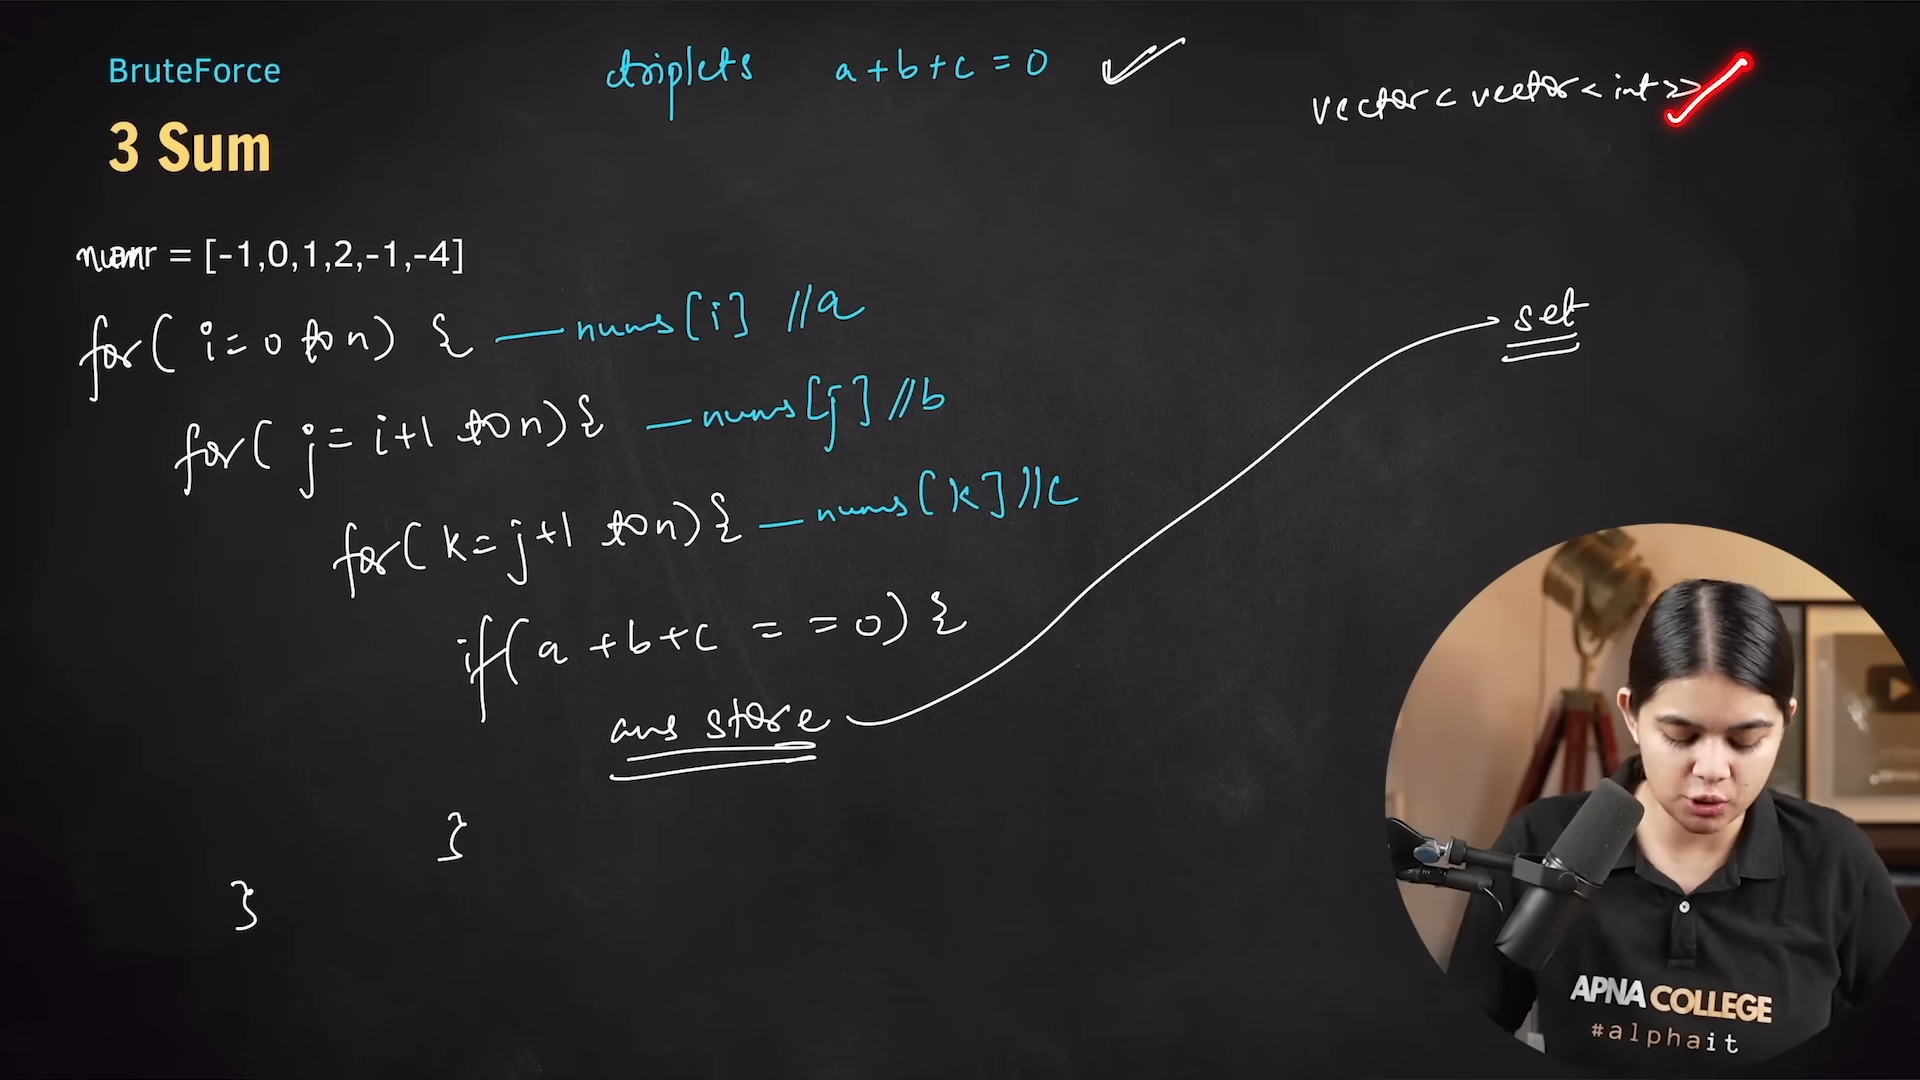 BruteForce
3 Sum
triplets a+b+c = 0
vector<vector<int>>
= [-1,0,1,2,-1,-4]
for( i=0 to n) { — nums[i] //a
for( j= i+1 to n){ — nums[j] //b
for( k= j+1 to n){ — nums[k] //c
if(a +b+c = =0) {
ans store
set
}
}
APNA COLLEGE
#alphait